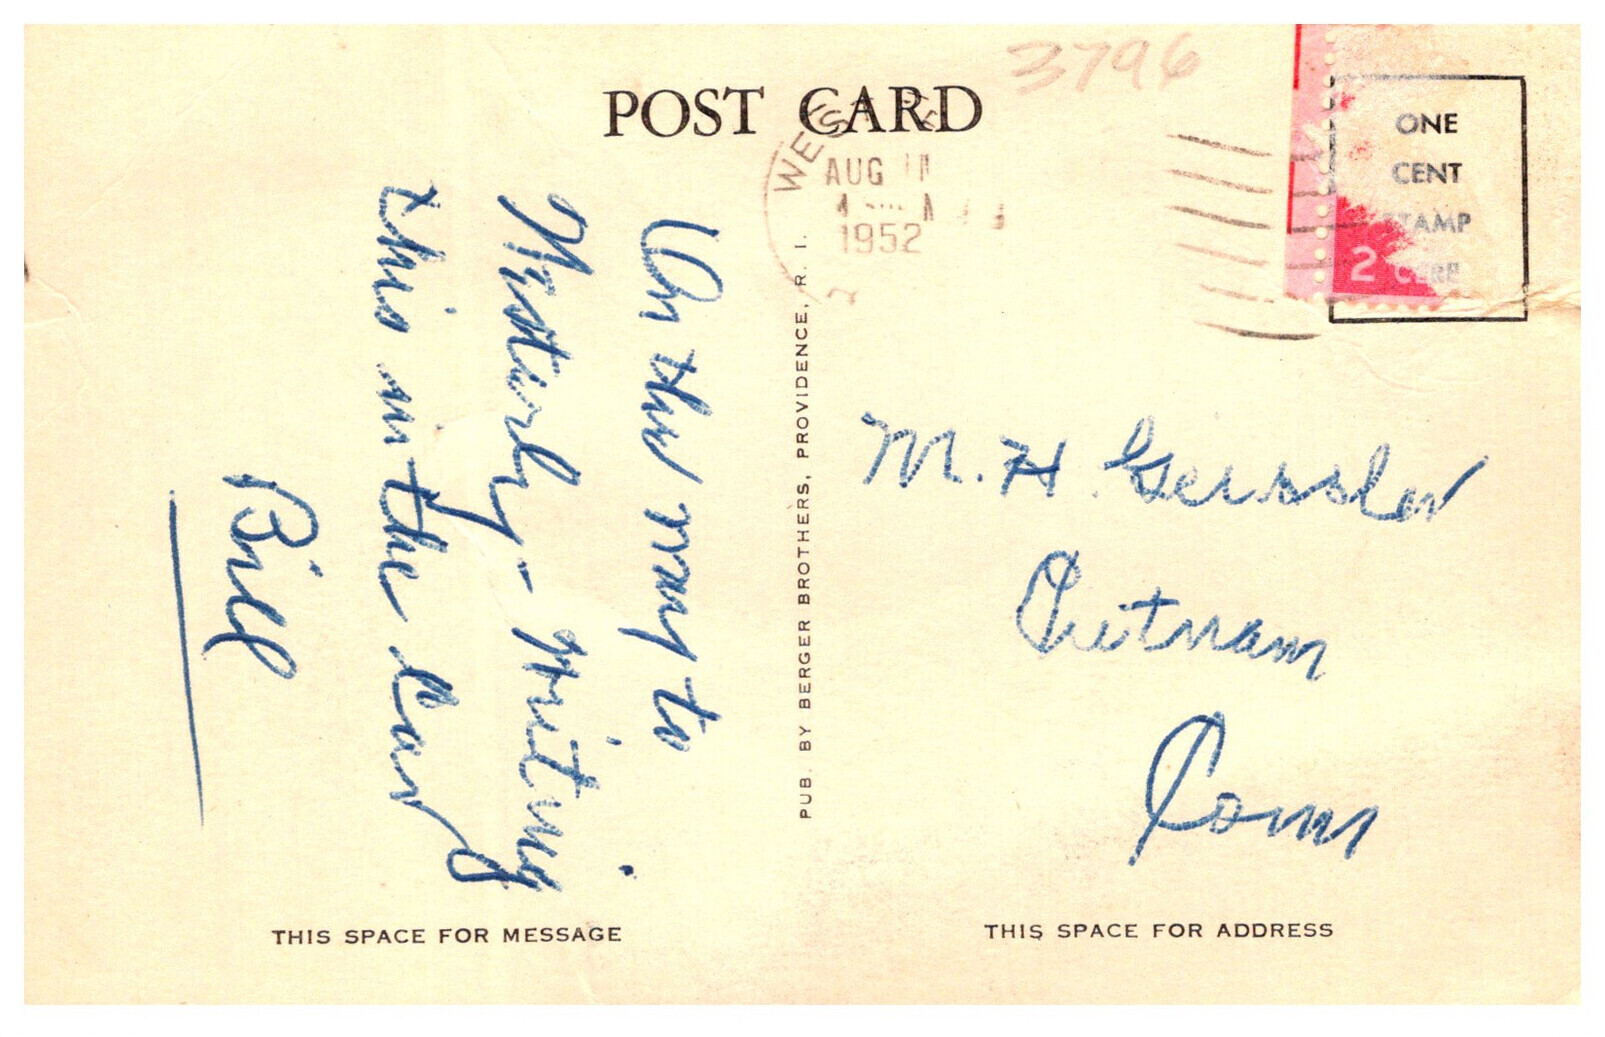 3796
POST CARD
AUG
1952
ONE
CENT
STAMP
2
On this way to
Westerly - Writing
this in the Car
Bill
PUB. BY BERGER BROTHERS, PROVIDENCE, R. I.
M. H. Geissler
Putnam
Conn
THIS SPACE FOR MESSAGE
THIS SPACE FOR ADDRESS